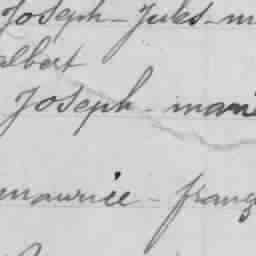 Joseph - Jules - m
albert
Joseph - marie
maurice - franç